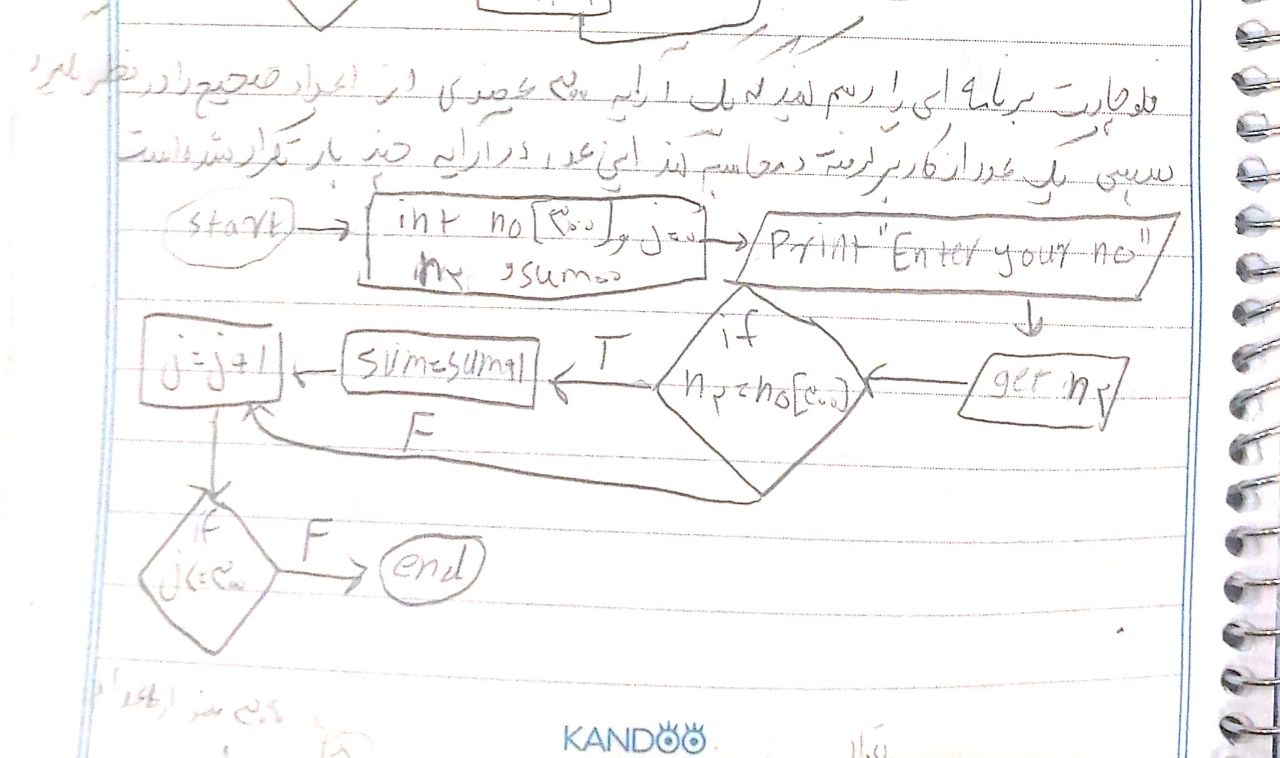 فلوچارت برنامه ای را رسم کنید که یک آرایه ۳۰۰ عضوی از اعداد صحیح را در نظر بگیرد
سپس یک عدد از کاربر گرفته و محاسبه کند این عدد در آرایه چند بار تکرار شده است
start
int no[۳۰۰], j=۰
n۲, sum=۰
Print "Enter your no"
j=j+1
sum=sum+1
T
if
n۲=no[۳۰۰]
get n۲
F
if
j<=۳۰۰
F
end
KANDOO